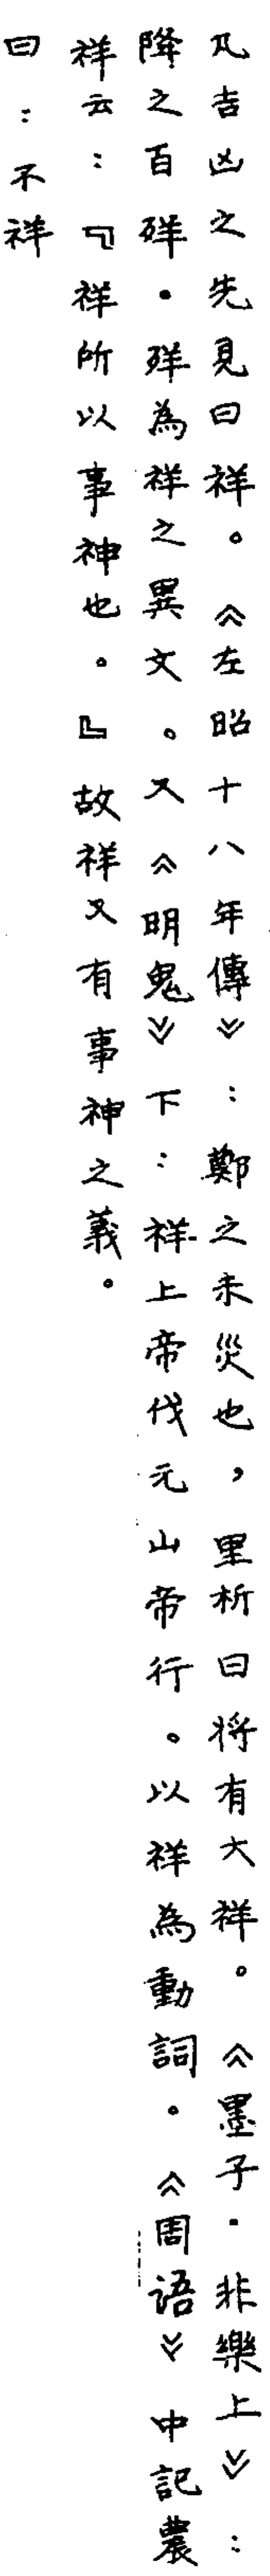 凡吉凶之先見曰祥。《左昭十八年傳》：鄭之未災也，里析曰將有大祥。《墨子·非樂上》：
降之百𦍲·𦍲為祥之異文。又《明鬼》下：祥上帝伐元山帝行。以祥為動詞。《周語》中記農
祥云：『祥所以事神也。』故祥又有事神之義。
曰：不祥